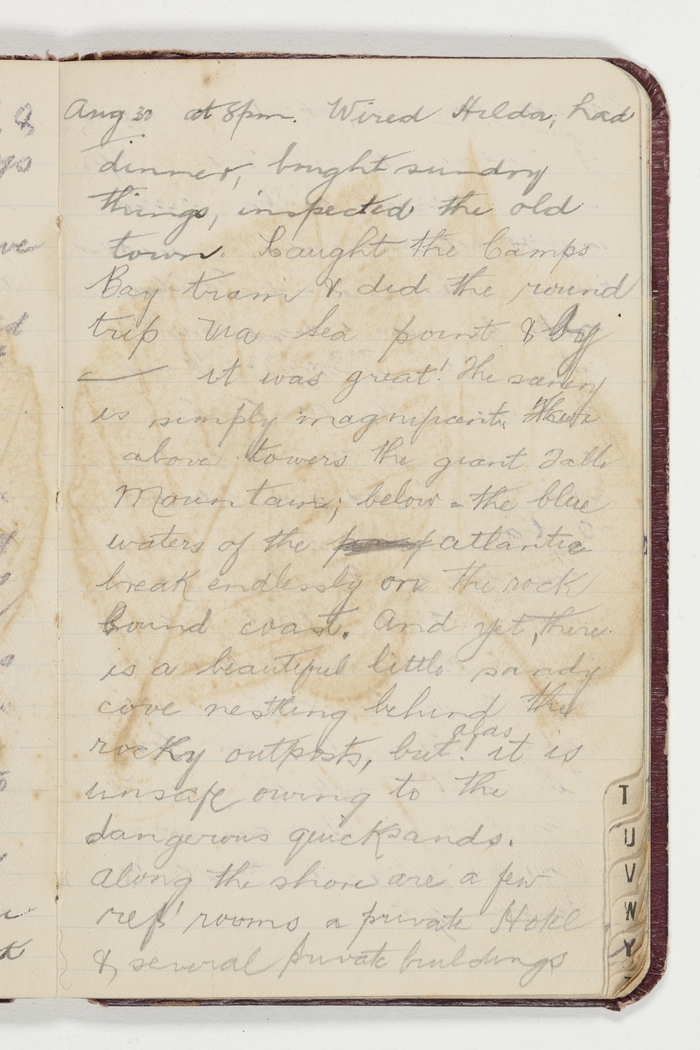 Aug 30 at 8pm. Wired Hilda, had
dinner, bought sundry
things, inspected the old
town. Caught the Camps
Bay tram & did the round
trip via Sea point & by
— it was great! The scenery
is simply magnificent.
above towers the giant Table
Mountain; below - the blue
waters of the atlantic
break endlessly on the rock
bound coast. And yet, there
is a beautiful little sandy
cove nestling behind the
rocky outposts, but alas it is
unsafe owing to the
dangerous quicksands.
Along the shore are a few
ref' rooms a private Hotel
& several private buildings
T
U
V
W
Y